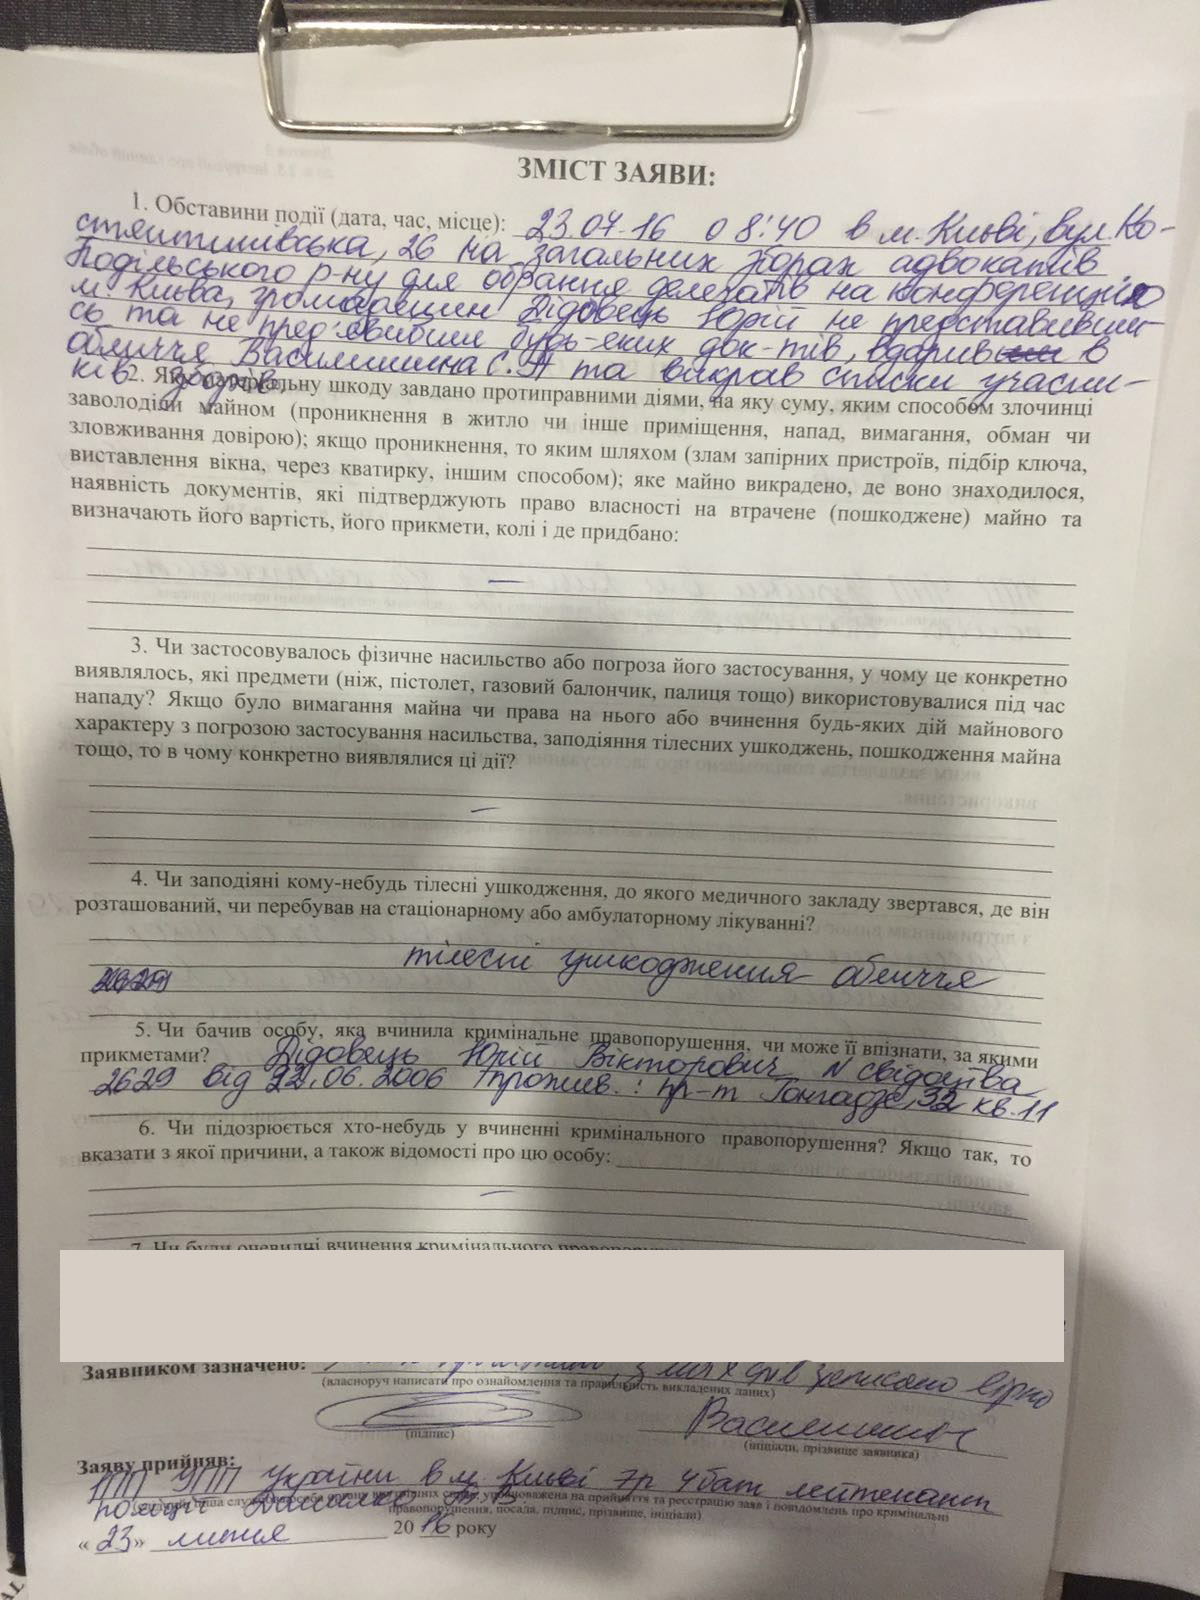 ЗМІСТ ЗАЯВИ:
1. Обставини події (дата, час, місце): 23.07.16 о 8:40 в м. Києві, вул. Ко-
26 на загальних зборах адвокатів
Подільського р-ну для обрання делегатів на конференцію
м. Києва, громадянин Дідовець Юрій не представивши
сь та не пред'явивши будь-яких док-тів, вдарив в
обличчя Василишина С.А та викрав списки учасни-
ків зборів.
2. Яку матеріальну шкоду завдано протиправними діями, на яку суму, яким способом злочинці
заволоділи майном (проникнення в житло чи інше приміщення, напад, вимагання, обман чи
зловживання довірою); якщо проникнення, то яким шляхом (злам запірних пристроїв, підбір ключа,
виставлення вікна, через кватирку, іншим способом); яке майно викрадено, де воно знаходилося,
наявність документів, які підтверджують право власності на втрачене (пошкоджене) майно та
визначають його вартість, його прикмети, колі і де придбано:
–
3. Чи застосовувалось фізичне насильство або погроза його застосування, у чому це конкретно
виявлялось, які предмети (ніж, пістолет, газовий балончик, палиця тощо) використовувалися під час
нападу? Якщо було вимагання майна чи права на нього або вчинення будь-яких дій майнового
характеру з погрозою застосування насильства, заподіяння тілесних ушкоджень, пошкодження майна
тощо, то в чому конкретно виявлялися ці дії?
–
4. Чи заподіяні кому-небудь тілесні ушкодження, до якого медичного закладу звертався, де він
розташований, чи перебував на стаціонарному або амбулаторному лікуванні?
тілесні ушкодження обличчя
5. Чи бачив особу, яка вчинила кримінальне правопорушення, чи може її впізнати, за якими
прикметами? Дідовець Юрій Вікторович N свідоцтва
2629 від 22.06.2006 прожив.: пр-т Гонгадзе, 32 кв. 11
6. Чи підозрюється хто-небудь у вчиненні кримінального правопорушення? Якщо так, то
вказати з якої причини, а також відомості про цю особу:
–
7. Чи були очевидці вчинення кримінального
Заявником зазначено: з моїх слів записано вірно
(власноруч написати про ознайомлення та правильність викладених даних)
Василишин С
(підпис)
(ініціали, прізвище заявника)
Заяву прийняв:
УПП України в м. Києві 7р 4бат лейтенант
поліції
на прийняття та реєстрацію заяв і повідомлень про кримінальні
правопорушення, посада, підпис, прізвище, ініціали)
« 23 » липня 20 16 року